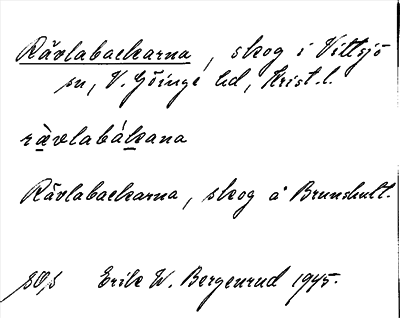 Rävlabackarna, skog i Vittsjö
sn, V. Göinge hd, Krist. l.
rävlabákana
Rävlabackarna, skog å Brunshult.
Erik W. Bergenrud 1945.